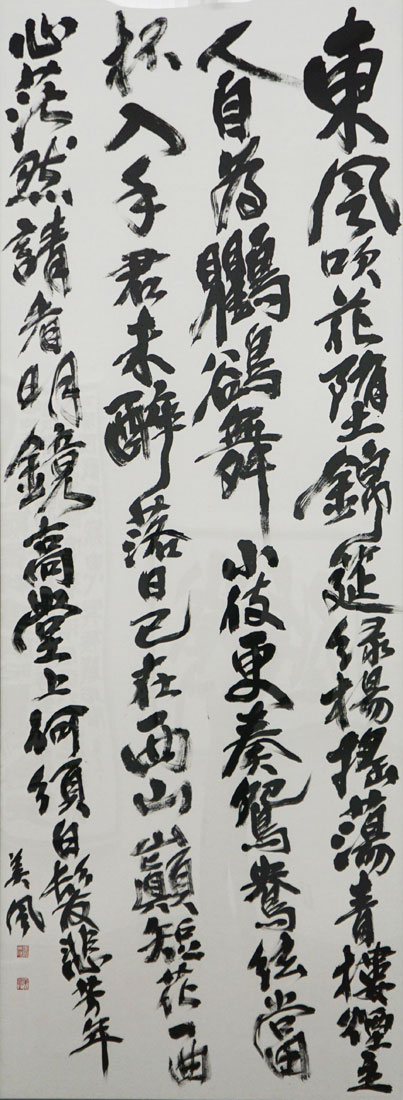 東風吹花墮錦筵緑楊搖蕩青樓煙主
人自為鸜鵒舞小伎更奏鴛鴦絃當
杯入手君未醉落日已在西山巓短花一曲
心茫然請看明鏡高堂上何須白髮悲芳年
美風